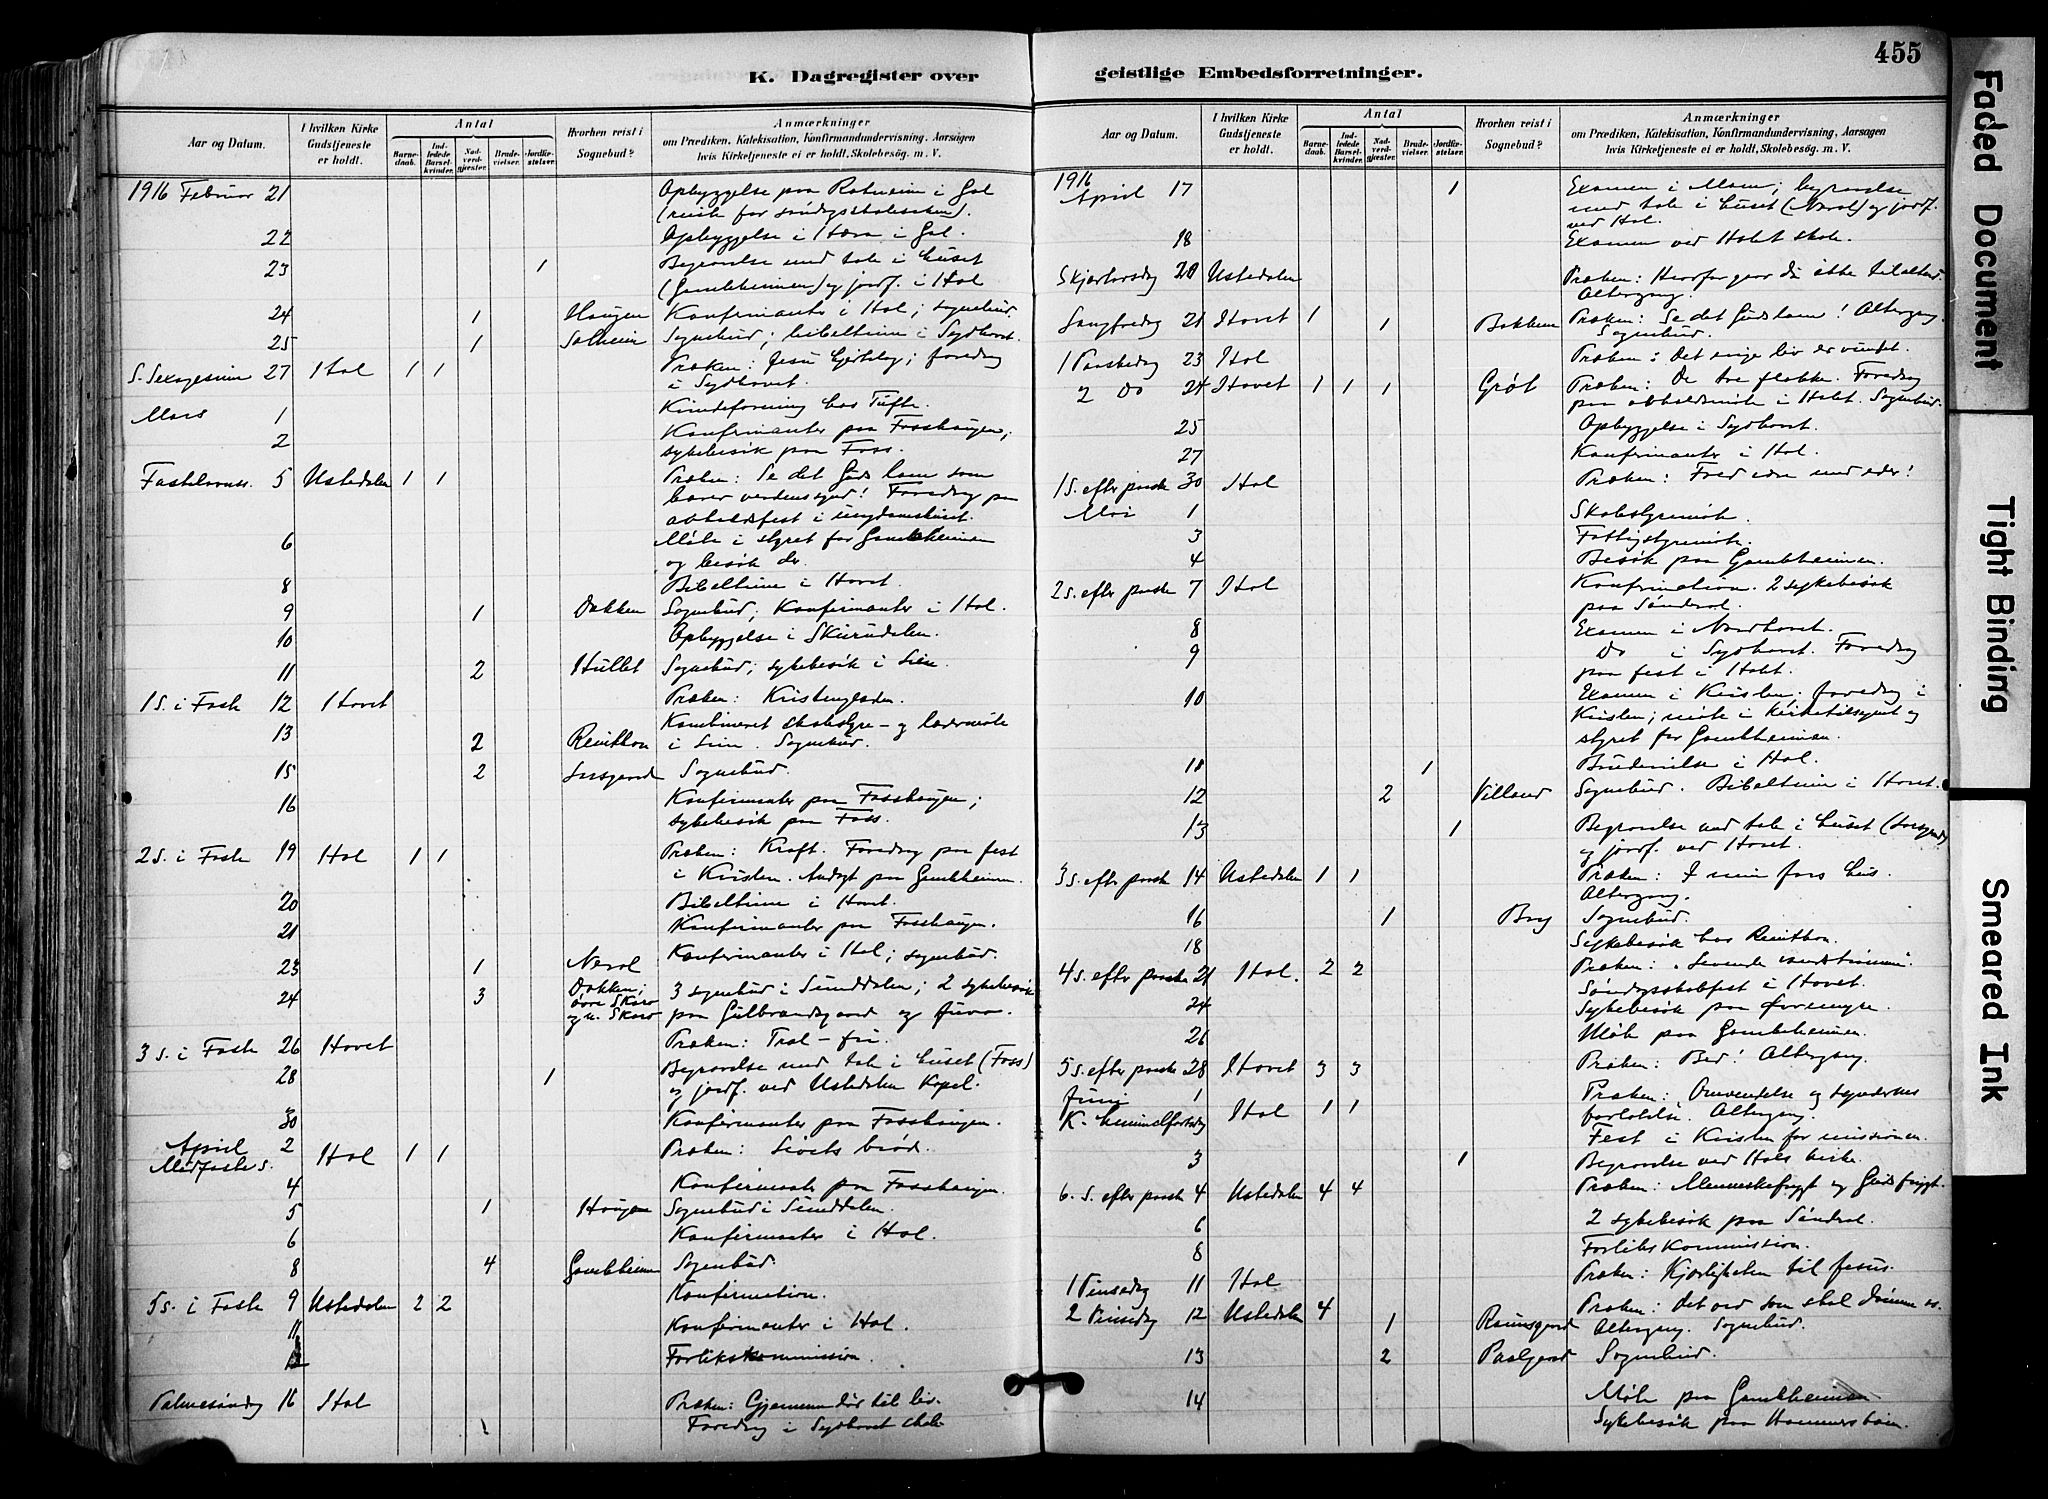 K. Dagregister over
Aar og Datum.
I hvilken Kirke Gudstjeneste er holdt.
Antal
Barnedaab.
Indledede Barselkvinder.
Nadverdgjester.
Brudevielser.
Jordfæstelser.
Hvorhen reist i Sognebud?
Anmærkninger
om Prædiken, Katekisation, Konfirmandundervisning, Aarsagen
hvis Kirketjeneste ei er holdt, Skolebesøg. m. V.
1916 Februar 21 Opbyggelse paa i Gol
(møte for søndagsskolesaken).
22 Opbyggelse i i Gol.
23 1 Begravelse med tale i huset
(Gamleheimen) og jordf. i Hol
24 1 Haugen Konfirmanter i Hol; sognebud.
25 1 Solheim Sognebud; bibeltime i Sydhovet.
S. Sexagesima 27 Hol 1 1 Præken: Jesu ; foredrag
i Sydhovet.
Mars 1 Kvindeforening hos Tufte.
2 Konfirmanter paa Fosshaugen;
sykebesøk paa Foss.
Fastelavnss. 5 Ustedalen 1 1 Præken: Se det Guds lam som
bærer verdens synd! Foredrag paa
avholdsfest i ungdomshuset.
6 Møte i styret for Gamleheimen
og besøk der
8 Bibeltime i Hovet.
9 1 Dokken Sognebud; Konfirmanter i Hol.
10 Opbyggelse i Skurudalen.
11 2 Hullet Sognebud; sykebesøk i Lien.
1 s. i Faste 12 Hovet Præken: Kristenglæden.
13 2 Kombineret skolestyre- og lærermøte
i Lien. Sognebud.
15 2 Sognebud.
16 Konfirmanter paa Fosshaugen;
sykebesøk paa Foss.
2 s. i Faste 19 Hol 1 1 Præken: Kraft. Foredrag paa fest
i Kvislen. Andagt paa Gamleheimen.
20 Bibeltime i Hovet.
21 Konfirmanter paa Fosshaugen.
23 1 Nerol Konfirmanter i Hol; sognebud.
24 3 Dokken; øvre Skaro og n. Skaro 3 sognebud i Sunddalen; 2 sykebesøk
paa Gulbrandsgaard og Juva.
3 s. i Faste 26 Hovet Præken: Træl - fri.
28 1 Begravelse med tale i huset (Foss)
og jordf. ved Ustedalen Kapel.
30 Konfirmanter paa Fosshaugen.
April 2
Midfaste s. Hol 1 1 Præken: Livets brød.
4 Konfirmanter paa Fosshaugen.
5 1 Haugen Sognebud i Sunddalen.
6 Konfirmanter i Hol.
8 4 Gamleheimen Sognebud
5 s. i Faste 9 Ustedalen 2 2 Konfirmation.
11 Konfirmanter i Hol.
Forlikskommission.
Palmesøndag 16 Hol Præken: Gjennem død til liv.
Foredrag i Sydhovet skole
455
geistlige Embedsforretninger.
Aar og Datum.
I hvilken Kirke Gudstjeneste er holdt.
Antal
Barnedaab.
Indledede Barselkvinder.
Nadverdgjester.
Brudevielser.
Jordfæstelser.
Hvorhen reist i Sognebud?
Anmærkninger
om Prædiken, Katekisation, Konfirmandundervisning, Aarsagen
hvis Kirketjeneste ei er holdt, Skolebesøg. m. V.
1916
April 17 1 Examen i Moen; begravelse
med tale i huset (Nerol) og jordf.
ved Hol.
18 Examen ved Holet skole.
Skjærtorsdag 20 Ustedalen Præken: Hvorfor gaar du ikke til alters?
Altergang.
Langfredag 21 Hovet 1 1 Bakken Præken: Se det Guds lam! Altergang.
Sognebud.
1 Paaskedag 23 Hol Præken: Det evige liv er vundet.
2 Do 24 Hovet 1 1 1 Grøt Præken: De tre flokke. Foredrag
paa avholdsmøte i Holet. Sognebud.
25 Opbyggelse i Sydhovet.
27 Konfirmanter i Hol.
1 s. efter paaske 30 Hol Præken: Fred være med eder!
Mai 1 Skolestyremøte.
3 Fattigstyremøte.
4 Besøk paa Gamleheimen.
2 s. efter paaske 7 Hol Konfirmation. 2 sykebesøk
paa Søndrol.
8 Examen i Nordhovet.
9 Do i Sydhovet. Foredrag
paa fest i Holet.
10 Examen i Kvislen; foredrag i
Kvislen; møte i kirketilsynet og
styret for Gamleheimen.
11 1 Brudevielse i Hol.
12 2 Villand Sognebud. Bibeltime i Hovet.
13 1 Begravelse med tale i huset
og jordf. ved Hovet.
3 s. efter paaske 14 Ustedalen 1 1 Præken: I min fars hus.
Altergang.
16 1 Sognebud.
18 Sykebesøk hos
4 s. efter paaske 21 Hol. 2 2 Præken: "Levende vandstrømme".
Søndagsskolefest i Hovet.
24 Sykebesøk paa
26 Møte paa Gamleheimen.
5 s. efter paaske 28 Hovet 3 3 Præken: Bed! Altergang.
Juni 1
K. himmelfartsdag Hol 1 1 Præken: Omvendelse og syndernes
forlatelse. Altergang.
Fest i Kvislen for missionen.
3 1 Begravelse ved Hols kirke.
6. s. efter paaske 4 Ustedalen 4 4 Præken: Menneskefrygt og Gudsfrygt.
6 2 sykebesøk paa Søndrol.
8 Forlikskommission.
1 Pinsedag 11 Hol Præken: Kjærligheten til Jesus.
2 Pinsedag 12 Ustedalen 4 1 Præken: Det ord som skal dømme os.
Altergang. Sognebud.
13 2 Paalgard Sognebud.
14 Møte paa Gamleheimen
Sykebesøk paa
Faded Document
Tight Binding
Smeared Ink